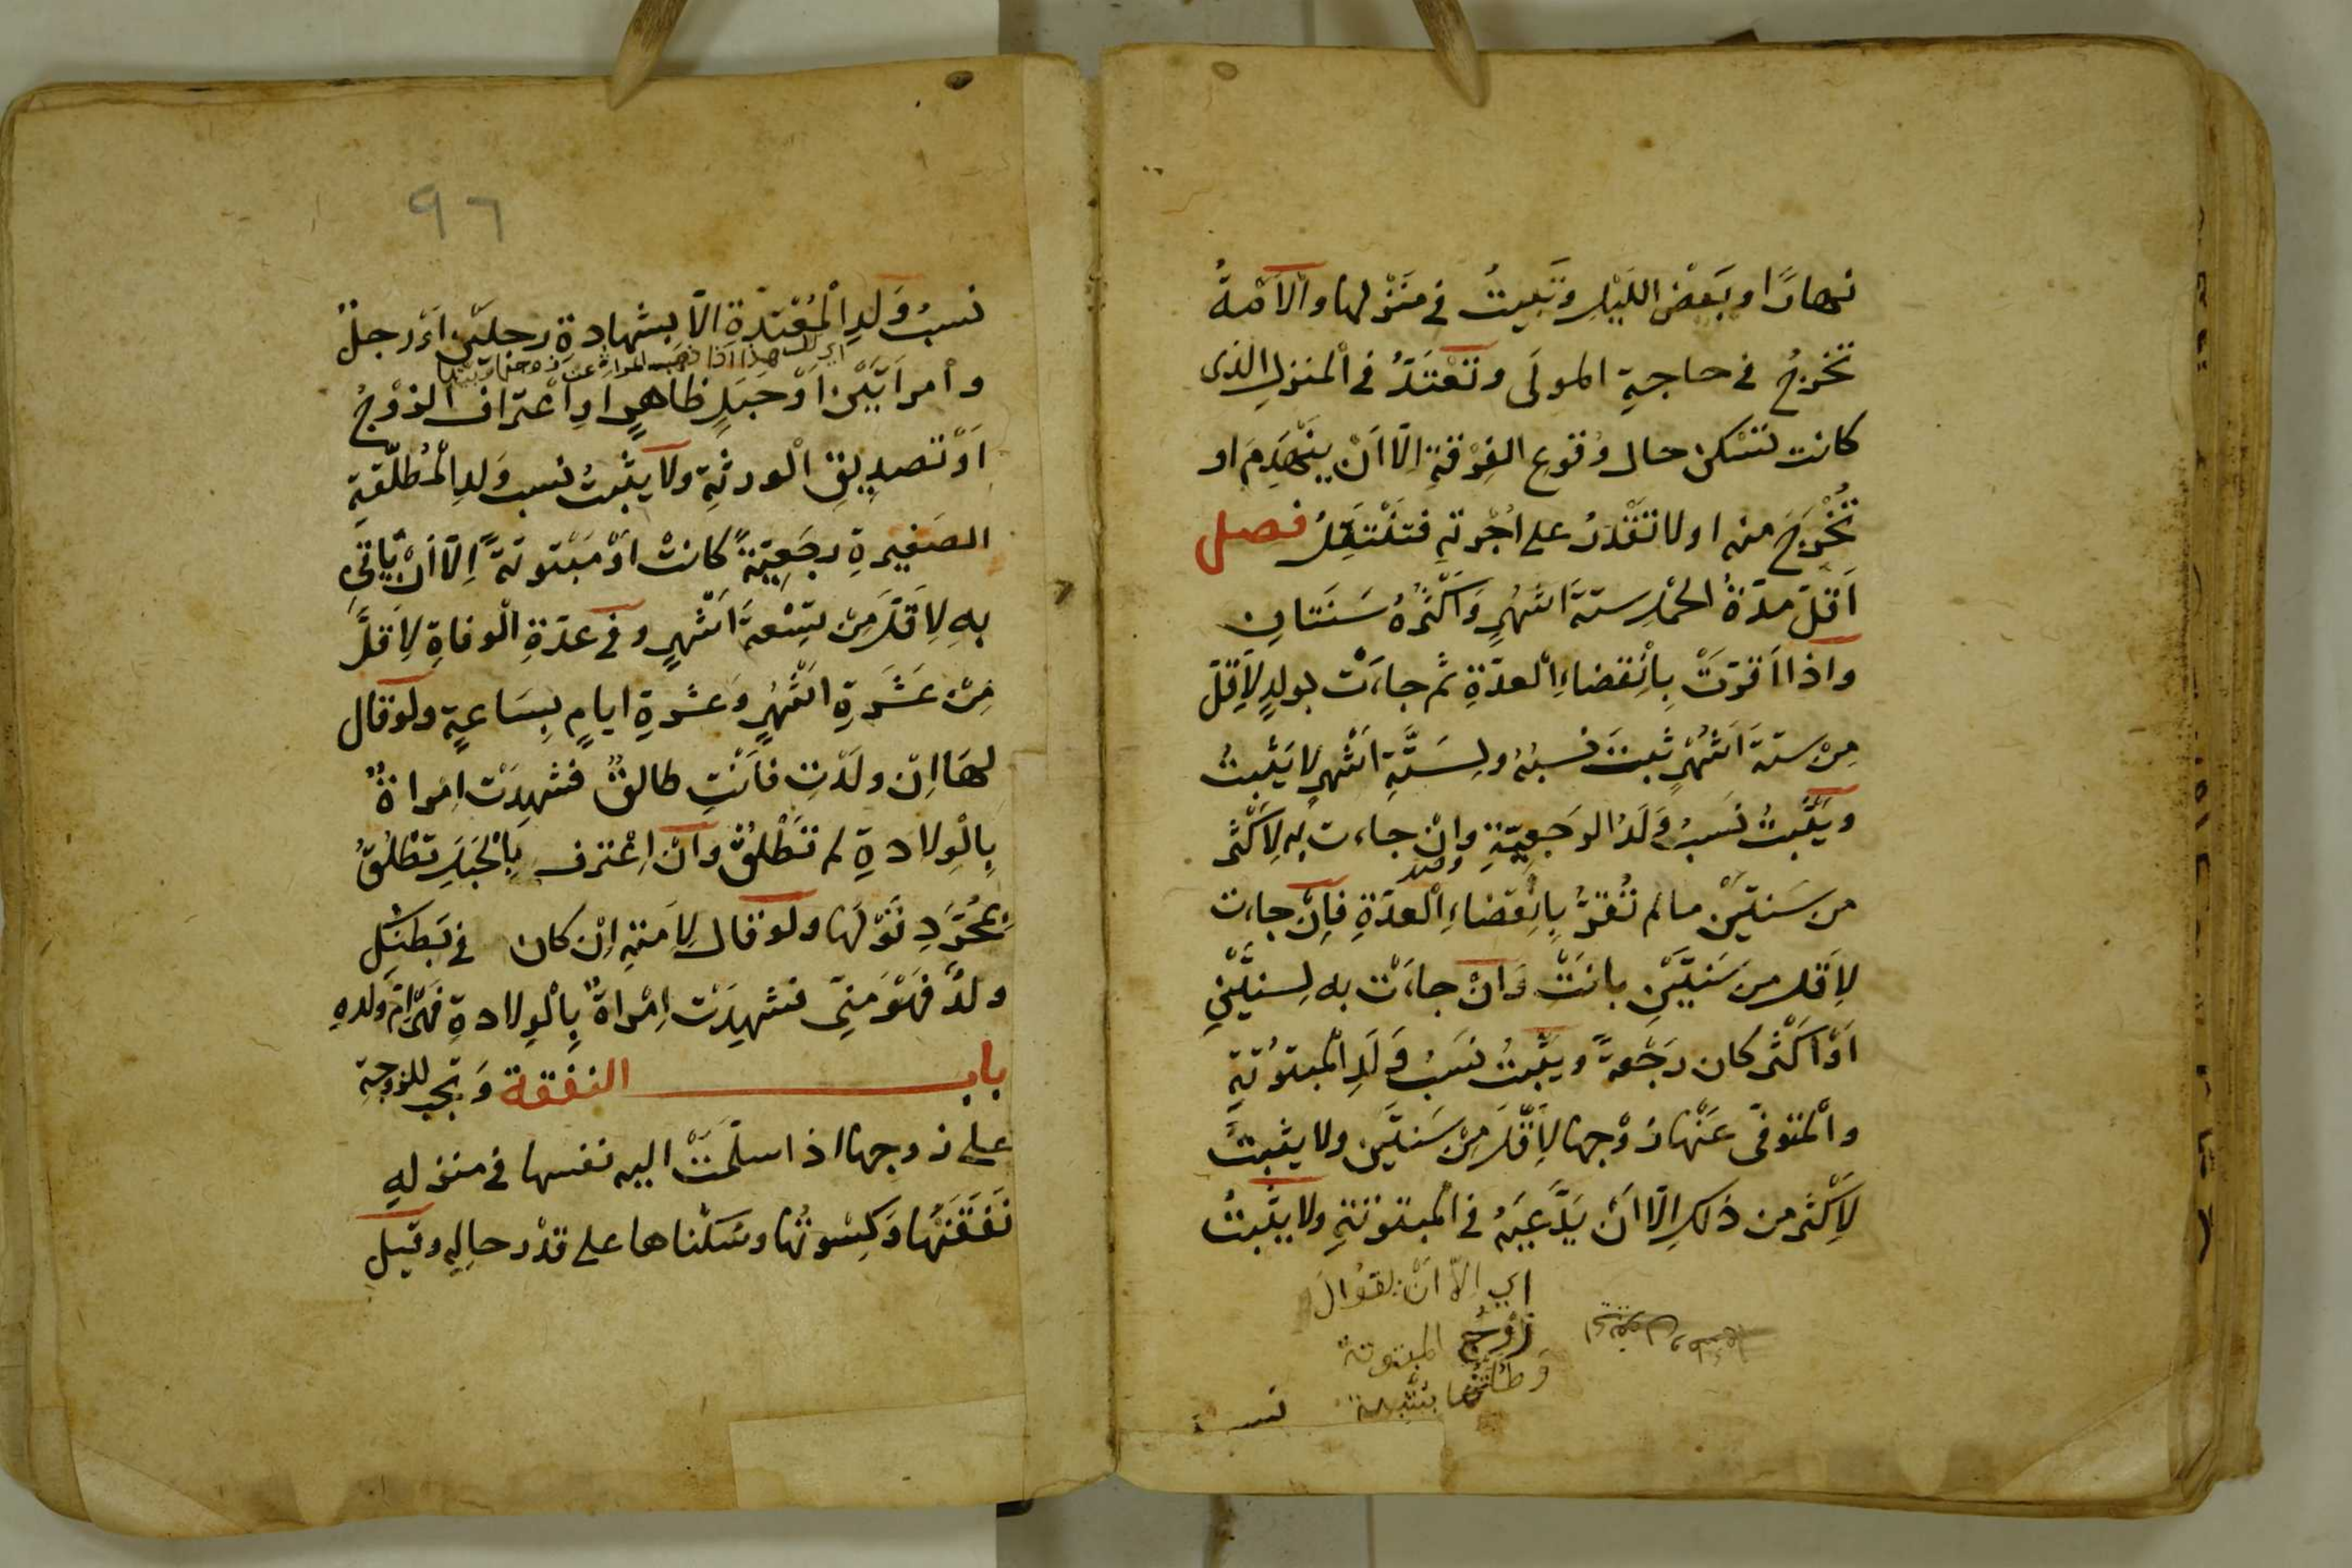 نهارًا وبَعْضَ اللَيْلِ وتَبيتُ في مَنْزلها والأمَةُ
تخرجُ في حاجةِ المولَى وتَعْتَدُّ في الْمنزلِ الذى
كانت تَسْكن حال وُقوع الفِرْقةِ اِلّا اَنْ يَنْهَدِمَ او
تُخْرَجَ منه او لا تَقْدرُ على اُجْرتهِ فتَنْتَقِلُ فصل
اَقَلّ مدّةُ الحمْلِ ستّةَ اشهُرٍ وَاَكْثَرُهُ سَنَتانِ
واذا اَقرّتَ بِاْنقضاءِ الْعدّةِ ثم جاءَت بولدٍ لِاَقلّ
مِنْ ستّةَ اَشْهُرٍ ثبتَ نسبُهُ ولِستَّةِ اَشْهرٍ لا يَثْبتُ
ويَثْبتُ نَسَبُ وَلَدُ الرجعِيّةِ وانْ جاءت به لِاَكْثَر
من سَنتَيْن ما لم تُقرَّ بِانْقضاءِ الْعدّةِ فاِنْ جاءت
لِاَقلّ من سَنتَيْنِ بانَتْ وَانْ جاءَتْ به لِسنتَيْنِ
اَوْ اَكْثَر كان رَجْعةً ويثْبتُ نسَبُ وَلَدِ الْمبتوُتةِ
والْمتوفّى عَنْها زوْجها لِاَقلَّ مِنْ سَنتَيْن ولا يثبتُ
لِاَكْثَر من ذلك اِلّا اَنْ يَدَّعيَهُ في الْمبتوتةِ ولا يثْبتُ
اي الّا اَنْ يقوُلَ
زوْجُ المبتوتة
وَطئتُها بشبهة
نسب
٩٦
نسبُ وَلَدِ الْمُعْتدّةِ الاّ بشهادة رجليْنِ اَوْ رجلٌ
وامرأتَيْن اَوْ حَبَلٍ ظاهرٍ اوِ اْعتراف الزوْجُ
اَوْ تصديقِ الْورثةِ ولا يثْبتُ نسب وَلدِ الْمُطلّقةِ
الصَغيرةِ رجَعِيّةً كانتْ اوْ مَبْتوتَةً اِلّا اَنْ يَأتيَ
بهِ لِاَقلّ مِنْ تِسْعةَ اَشْهرٍ وفي عدّةِ الْوفاةِ لِاَقلَّ
مِنْ عَشَرةِ اشْهُرٍ وَعشرةِ ايامٍ بِسَاعةٍ ولو قال
لهَا اِنْ ولَدْتِ فاَنْتِ طالقٌ فشهدَتْ اِمْراةٌ
بِالْولادةِ لم تَطْلُقْ وَانْ اِعْترف بِالْحَبَلِ تَطْلُقُ
بمُجَرّدِ قَوْلها ولو قال لِاَمتهِ اِنْ كان في بَطنِكِ
ولدٌ فهوَ مِنّي فشهِدَتْ اِمْراةٌ بِالْولادةِ فَهي اُمّ ولدهِ
باب النفقة وَتجب للزوجةِ
على زوجها اذا سلّمَتْ اليه نفسها في منزلهِ
نَفقَتُها وَكِسْوتُها وسُكْناها على قدْر حالِه وقيل